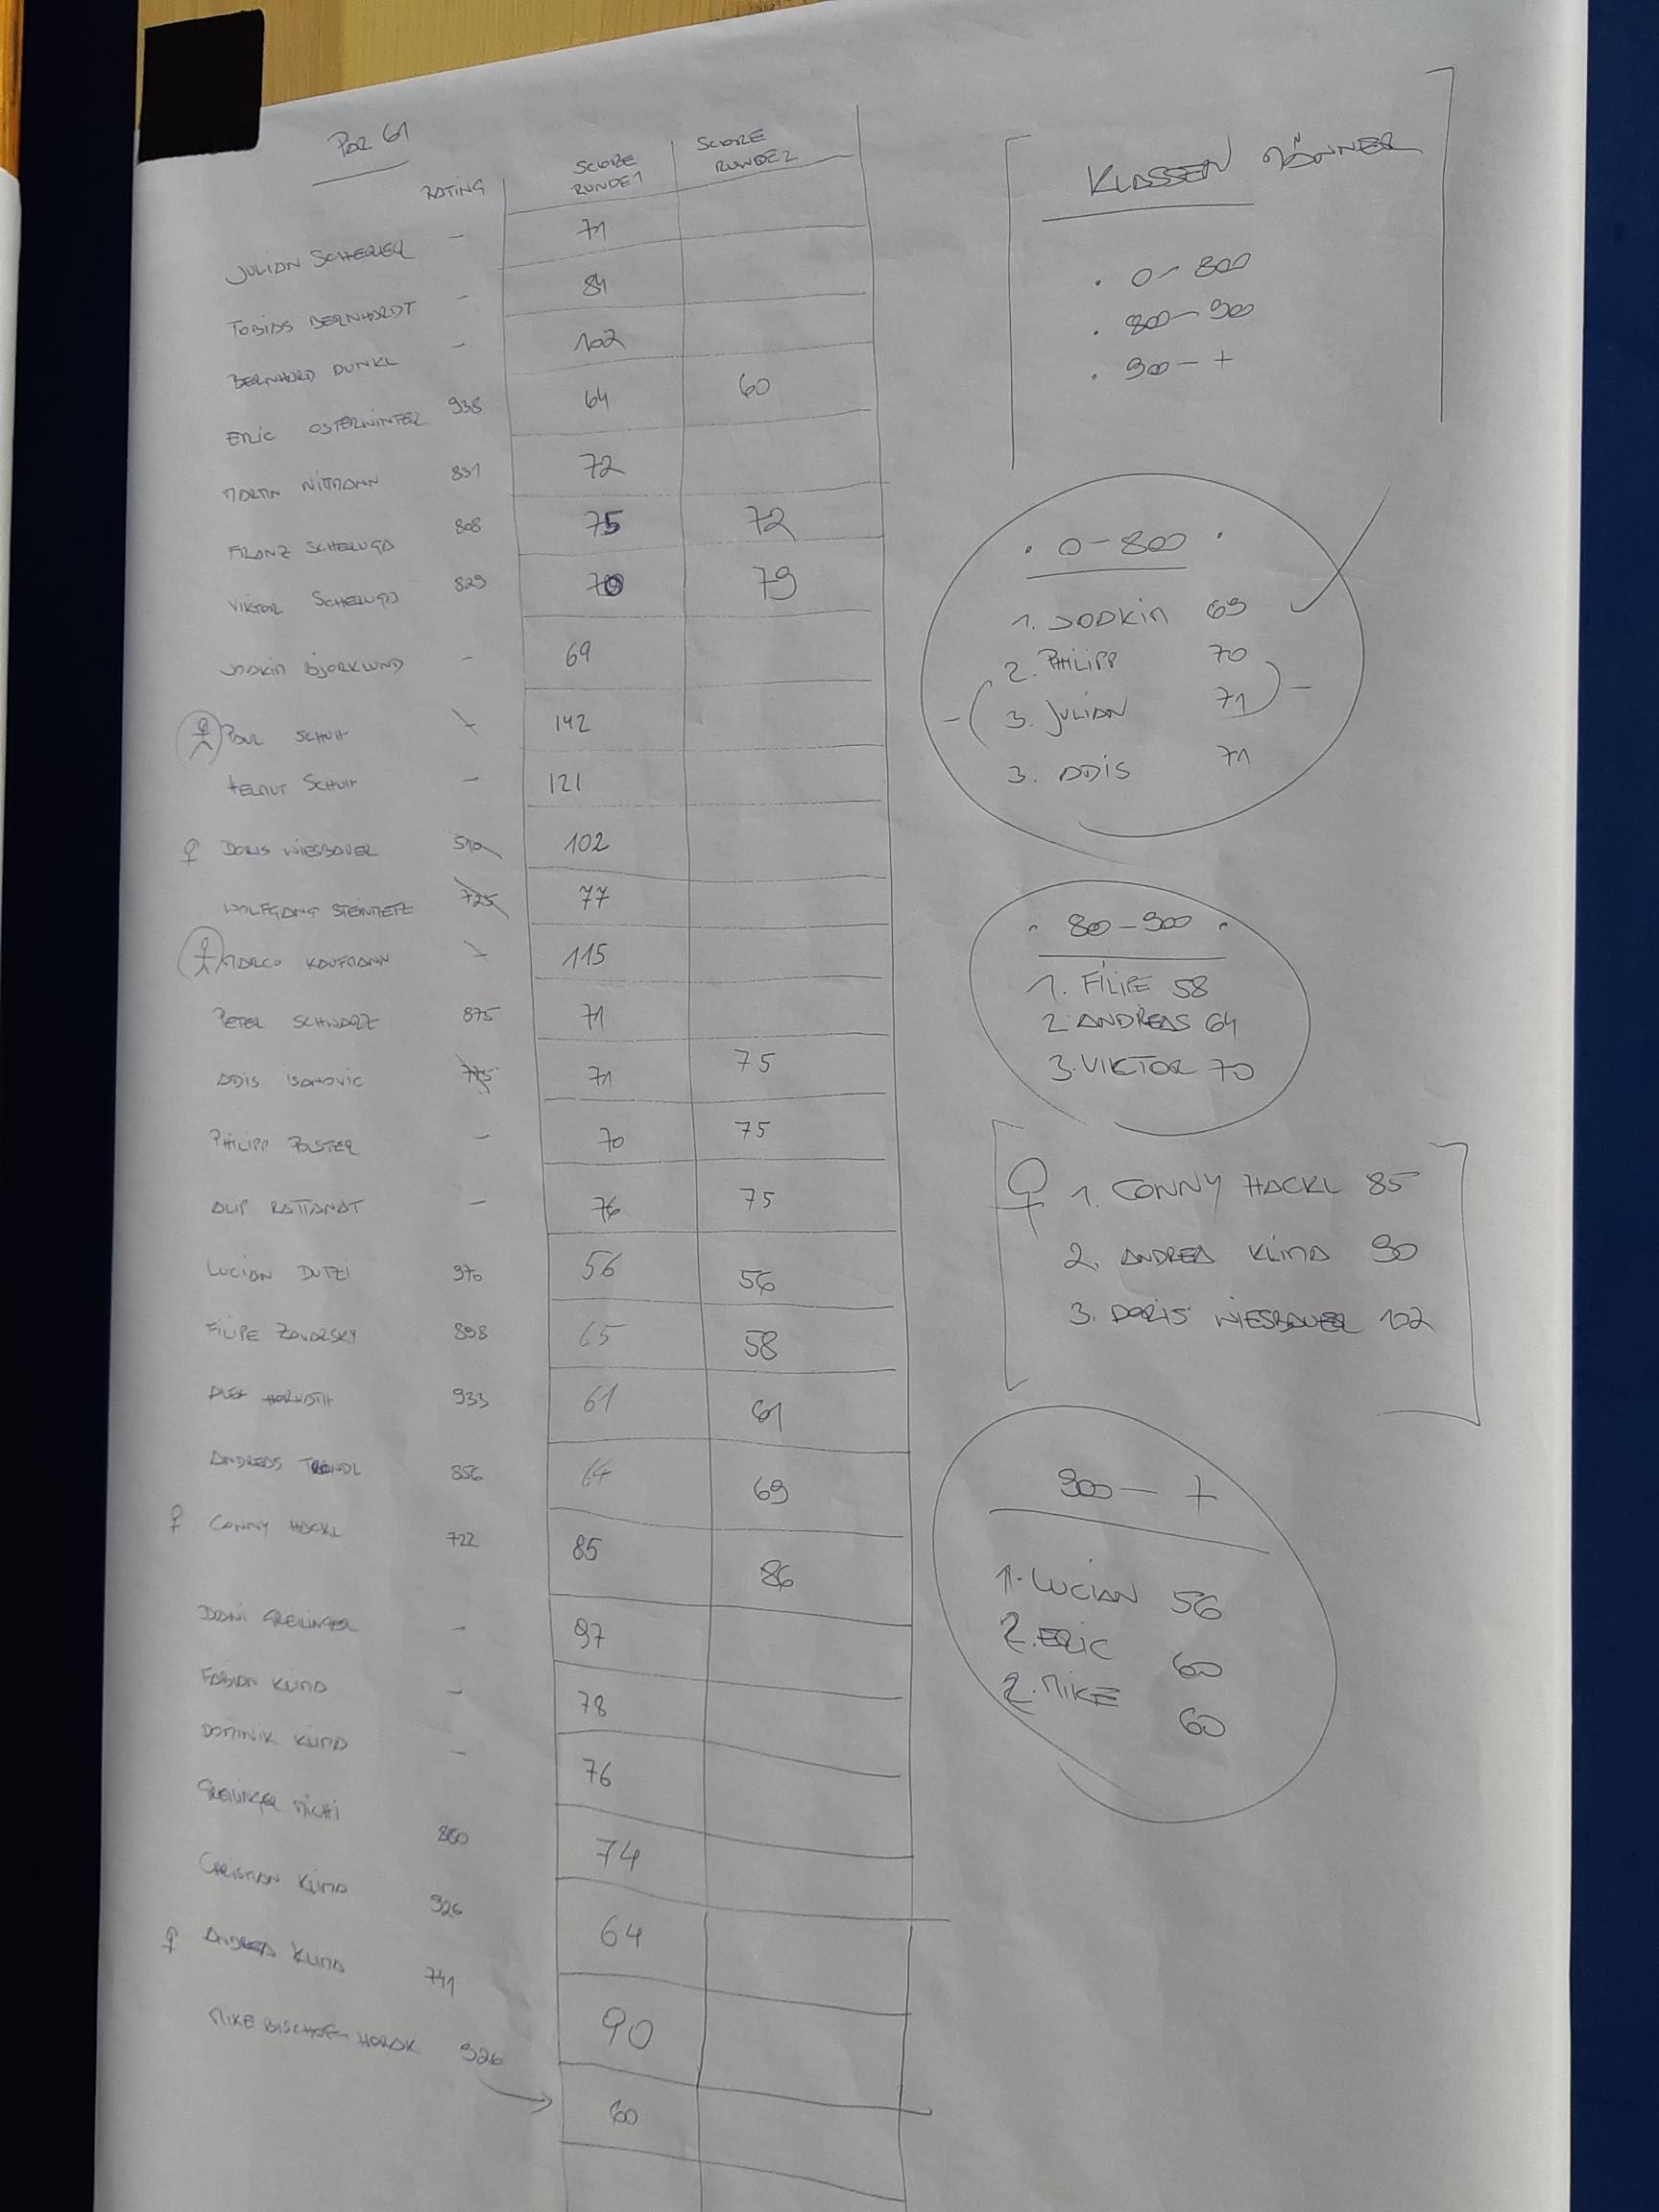 PAR 61
RATING SCORE RUNDE 1 SCORE RUNDE 2
JULIAN SCHERLER - 71
TOBIAS BERNHARDT - 84
BERNHARD DUNKL - 102
ERIC OSTERWINTER 938 64 60
MARTIN WITTMANN 831 72
FRANZ SCHERUGA 808 75 72
VIKTOR SCHERUGA 829 70 79
JOAKIM BJORKLUND - 69
PAUL SCHUH - 142
HELMUT SCHUH - 121
♀ DORIS WIESBAUER 510 102
WOLFGANG STEINMETZ 725 77
MARCO KAUFMANN - 115
PETER SCHWARZ 875 71
ADIS ISANOVIC 775 71 75
PHILIPP POLSTER - 70 75
ALIP - 76 75
LUCIAN DUTZI 970 56 56
FILIPE ZAVARSKY 898 65 58
ALEX HORVATH 933 61 61
ANDREAS TRANDL 856 64 69
♀ CONNY HACKL 722 85 86
DANI GREILINGER - 97
FABIAN KLIMA - 78
DOMINIK KLIMA - 76
GREILINGER MICHI 880 74
CHRISTIAN KLIMA 926 64
♀ ANDREA KLIMA 741 90
MIKE BISCHOF-HORAK 926 → 60
KLASSEN MÄNNER
• 0-800
• 800-900
• 900-+
• 0-800 •
1. JOAKIM 69
2. PHILIPP 70
-( 3. JULIAN 71 )-
3. ADIS 71
• 80-900 •
1. FILIPE 58
2. ANDREAS 64
3. VIKTOR 70
♀ 1. CONNY HACKL 85
2. ANDREA KLIMA 90
3. DORIS WIESBAUER 102
900-+
1. LUCIAN 56
2. ERIC 60
2. MIKE 60